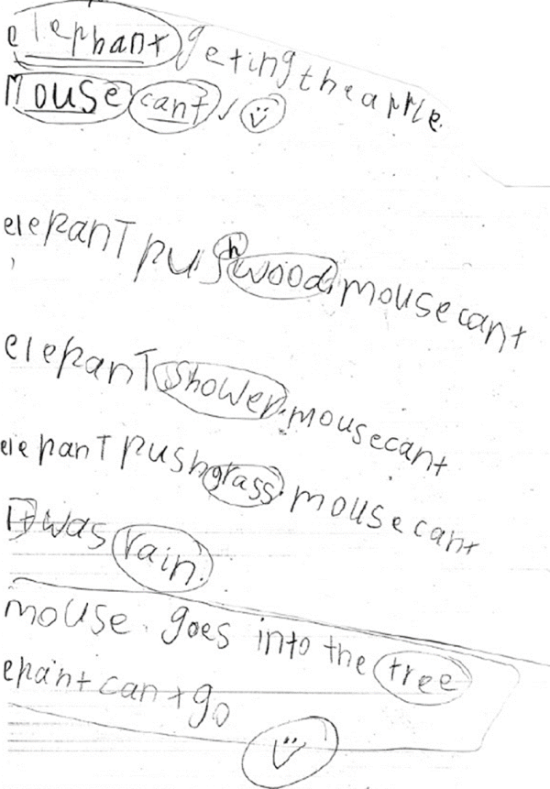 elephant geting the apple.
Mouse cant
elepant push wood. mouse cant
elepant shower. mouse cant
elepant push grass. mouse cant
it was rain.
mouse. goes into the tree
epant cant go